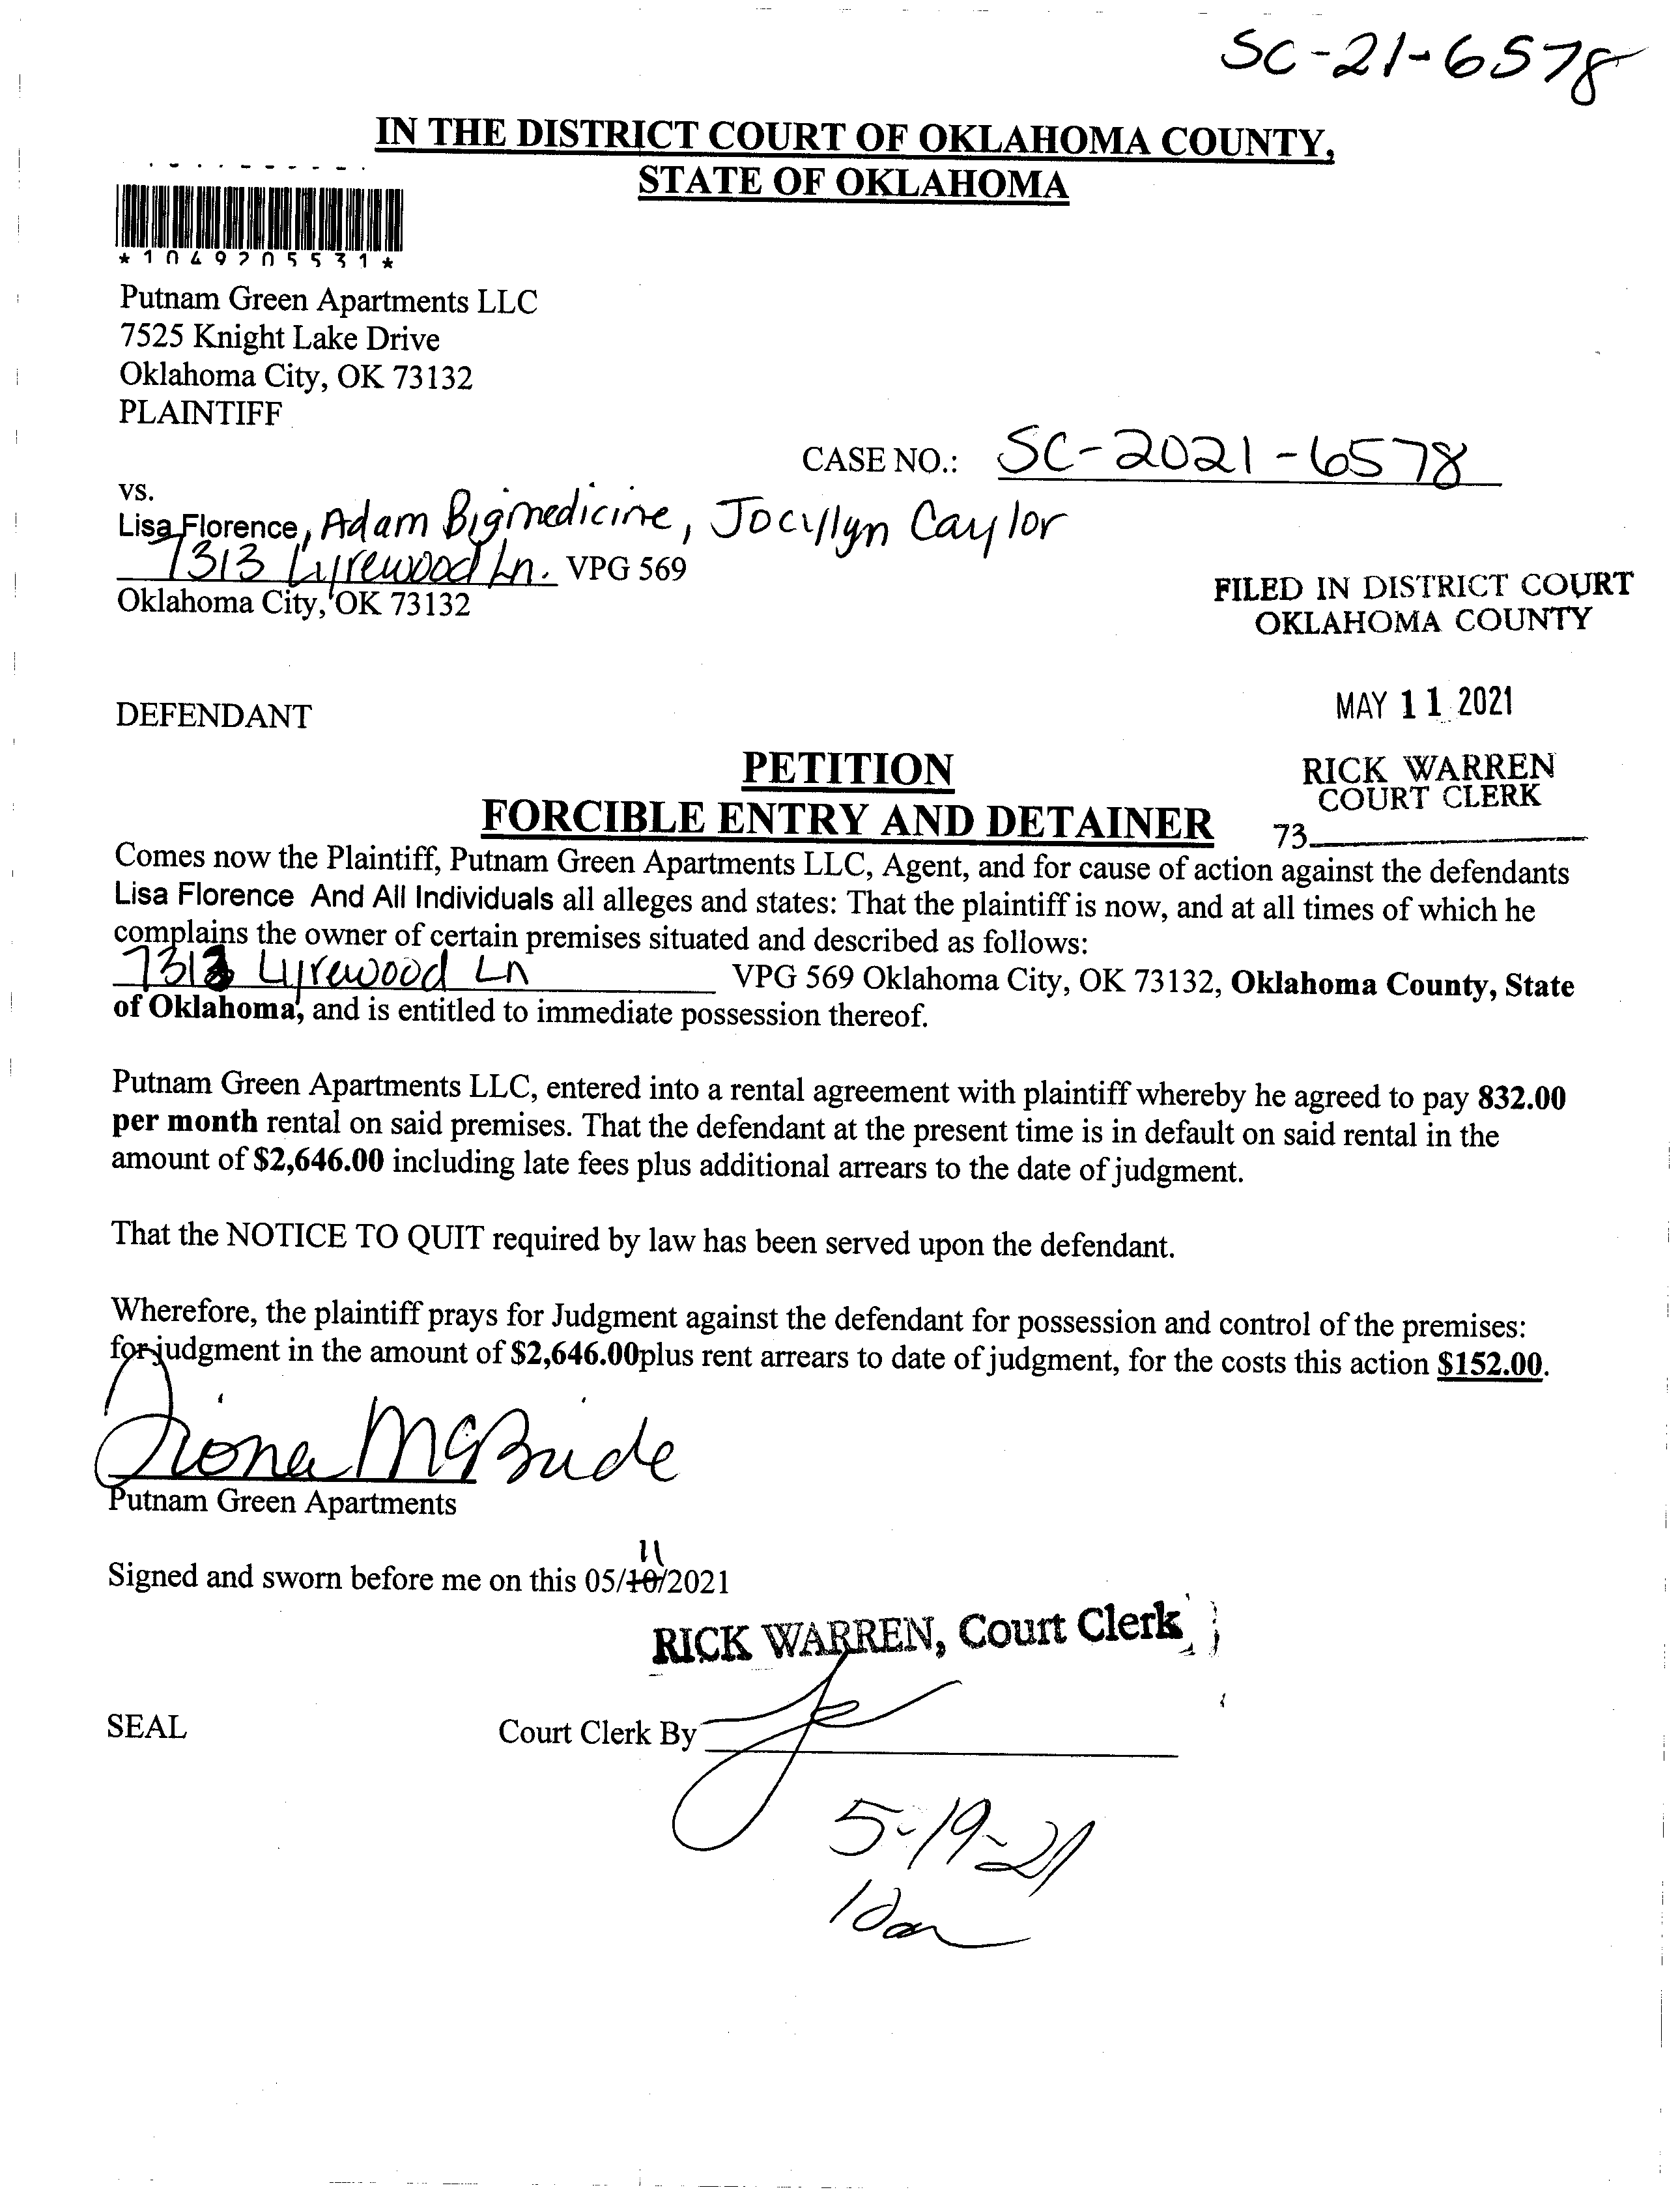 SC-21-6578
IN THE DISTRICT COURT OF OKLAHOMA COUNTY,
STATE OF OKLAHOMA
*1049205531*
Putnam Green Apartments LLC
7525 Knight Lake Drive
Oklahoma City, OK 73132
PLAINTIFF
CASE NO.: SC-2021-6578
vs.
Lisa Florence, Adam Bigmedicine, Jocyllyn Caylor
7313 Lyrewood Ln. VPG 569
Oklahoma City, OK 73132
FILED IN DISTRICT COURT
OKLAHOMA COUNTY
MAY 11 2021
DEFENDANT
RICK WARREN
COURT CLERK
73
PETITION
FORCIBLE ENTRY AND DETAINER
Comes now the Plaintiff, Putnam Green Apartments LLC, Agent, and for cause of action against the defendants
Lisa Florence And All Individuals all alleges and states: That the plaintiff is now, and at all times of which he
complains the owner of certain premises situated and described as follows:
7313 Lyrewood Ln VPG 569 Oklahoma City, OK 73132, Oklahoma County, State
of Oklahoma, and is entitled to immediate possession thereof.
Putnam Green Apartments LLC, entered into a rental agreement with plaintiff whereby he agreed to pay 832.00
per month rental on said premises. That the defendant at the present time is in default on said rental in the
amount of $2,646.00 including late fees plus additional arrears to the date of judgment.
That the NOTICE TO QUIT required by law has been served upon the defendant.
Wherefore, the plaintiff prays for Judgment against the defendant for possession and control of the premises:
for judgment in the amount of $2,646.00plus rent arrears to date of judgment, for the costs this action $152.00.
Fiona McBride
Putnam Green Apartments
11
Signed and sworn before me on this 05/10/2021
RICK WARREN, Court Clerk
SEAL
Court Clerk By
5-19-21